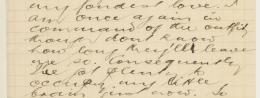 my fondest love. I
am once again in
command of the outfit,
though don't know
how long they'll leave
me so. Consequently
I've got plenty to
occupy my little
brain just now. So